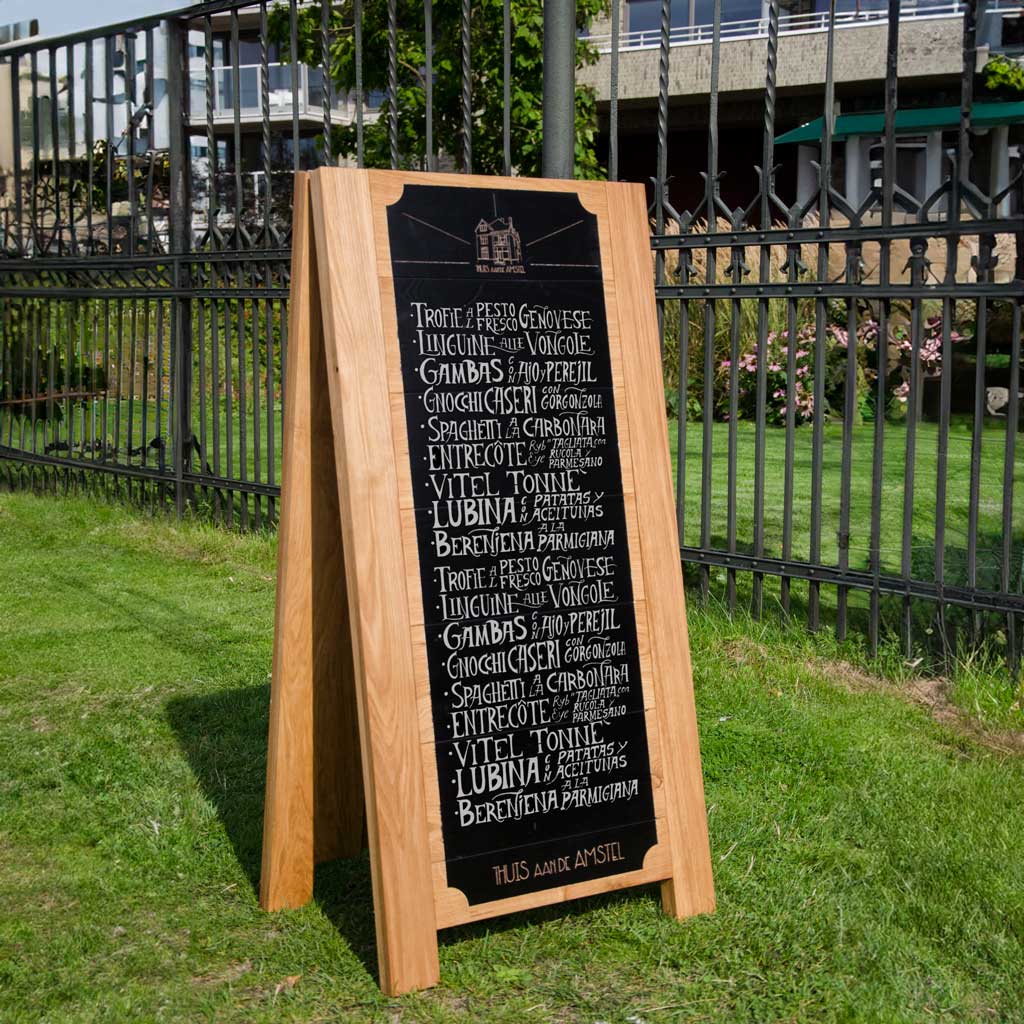 THUIS AAN DE AMSTEL
·TROFIE AL PESTO FRESCO GENOVESE
·LINGUINE ALLE VONGOLE
·GAMBAS CON AJO Y PEREJIL
·GNOCCHI CASERI CON GORGONZOLA
·SPAGHETTI A LA CARBONARA
·ENTRECÔTE Ryb Eye "TAGLIATA con RUCOLA y PARMESANO
·VITEL TONNÈ
·LUBINA CON PATATAS Y ACEITUNAS
·BERENJENA A LA PARMIGIANA
·TROFIE AL PESTO FRESCO GENOVESE
·LINGUINE ALLE VONGOLE
·GAMBAS CON AJO Y PEREJIL
·GNOCCHI CASERI CON GORGONZOLA
·SPAGHETTI A LA CARBONARA
·ENTRECÔTE Ryb Eye "TAGLIATA con RUCOLA y PARMESANO
·VITEL TONNÈ
·LUBINA CON PATATAS Y ACEITUNAS
·BERENJENA A LA PARMIGIANA
THUIS AAN DE AMSTEL